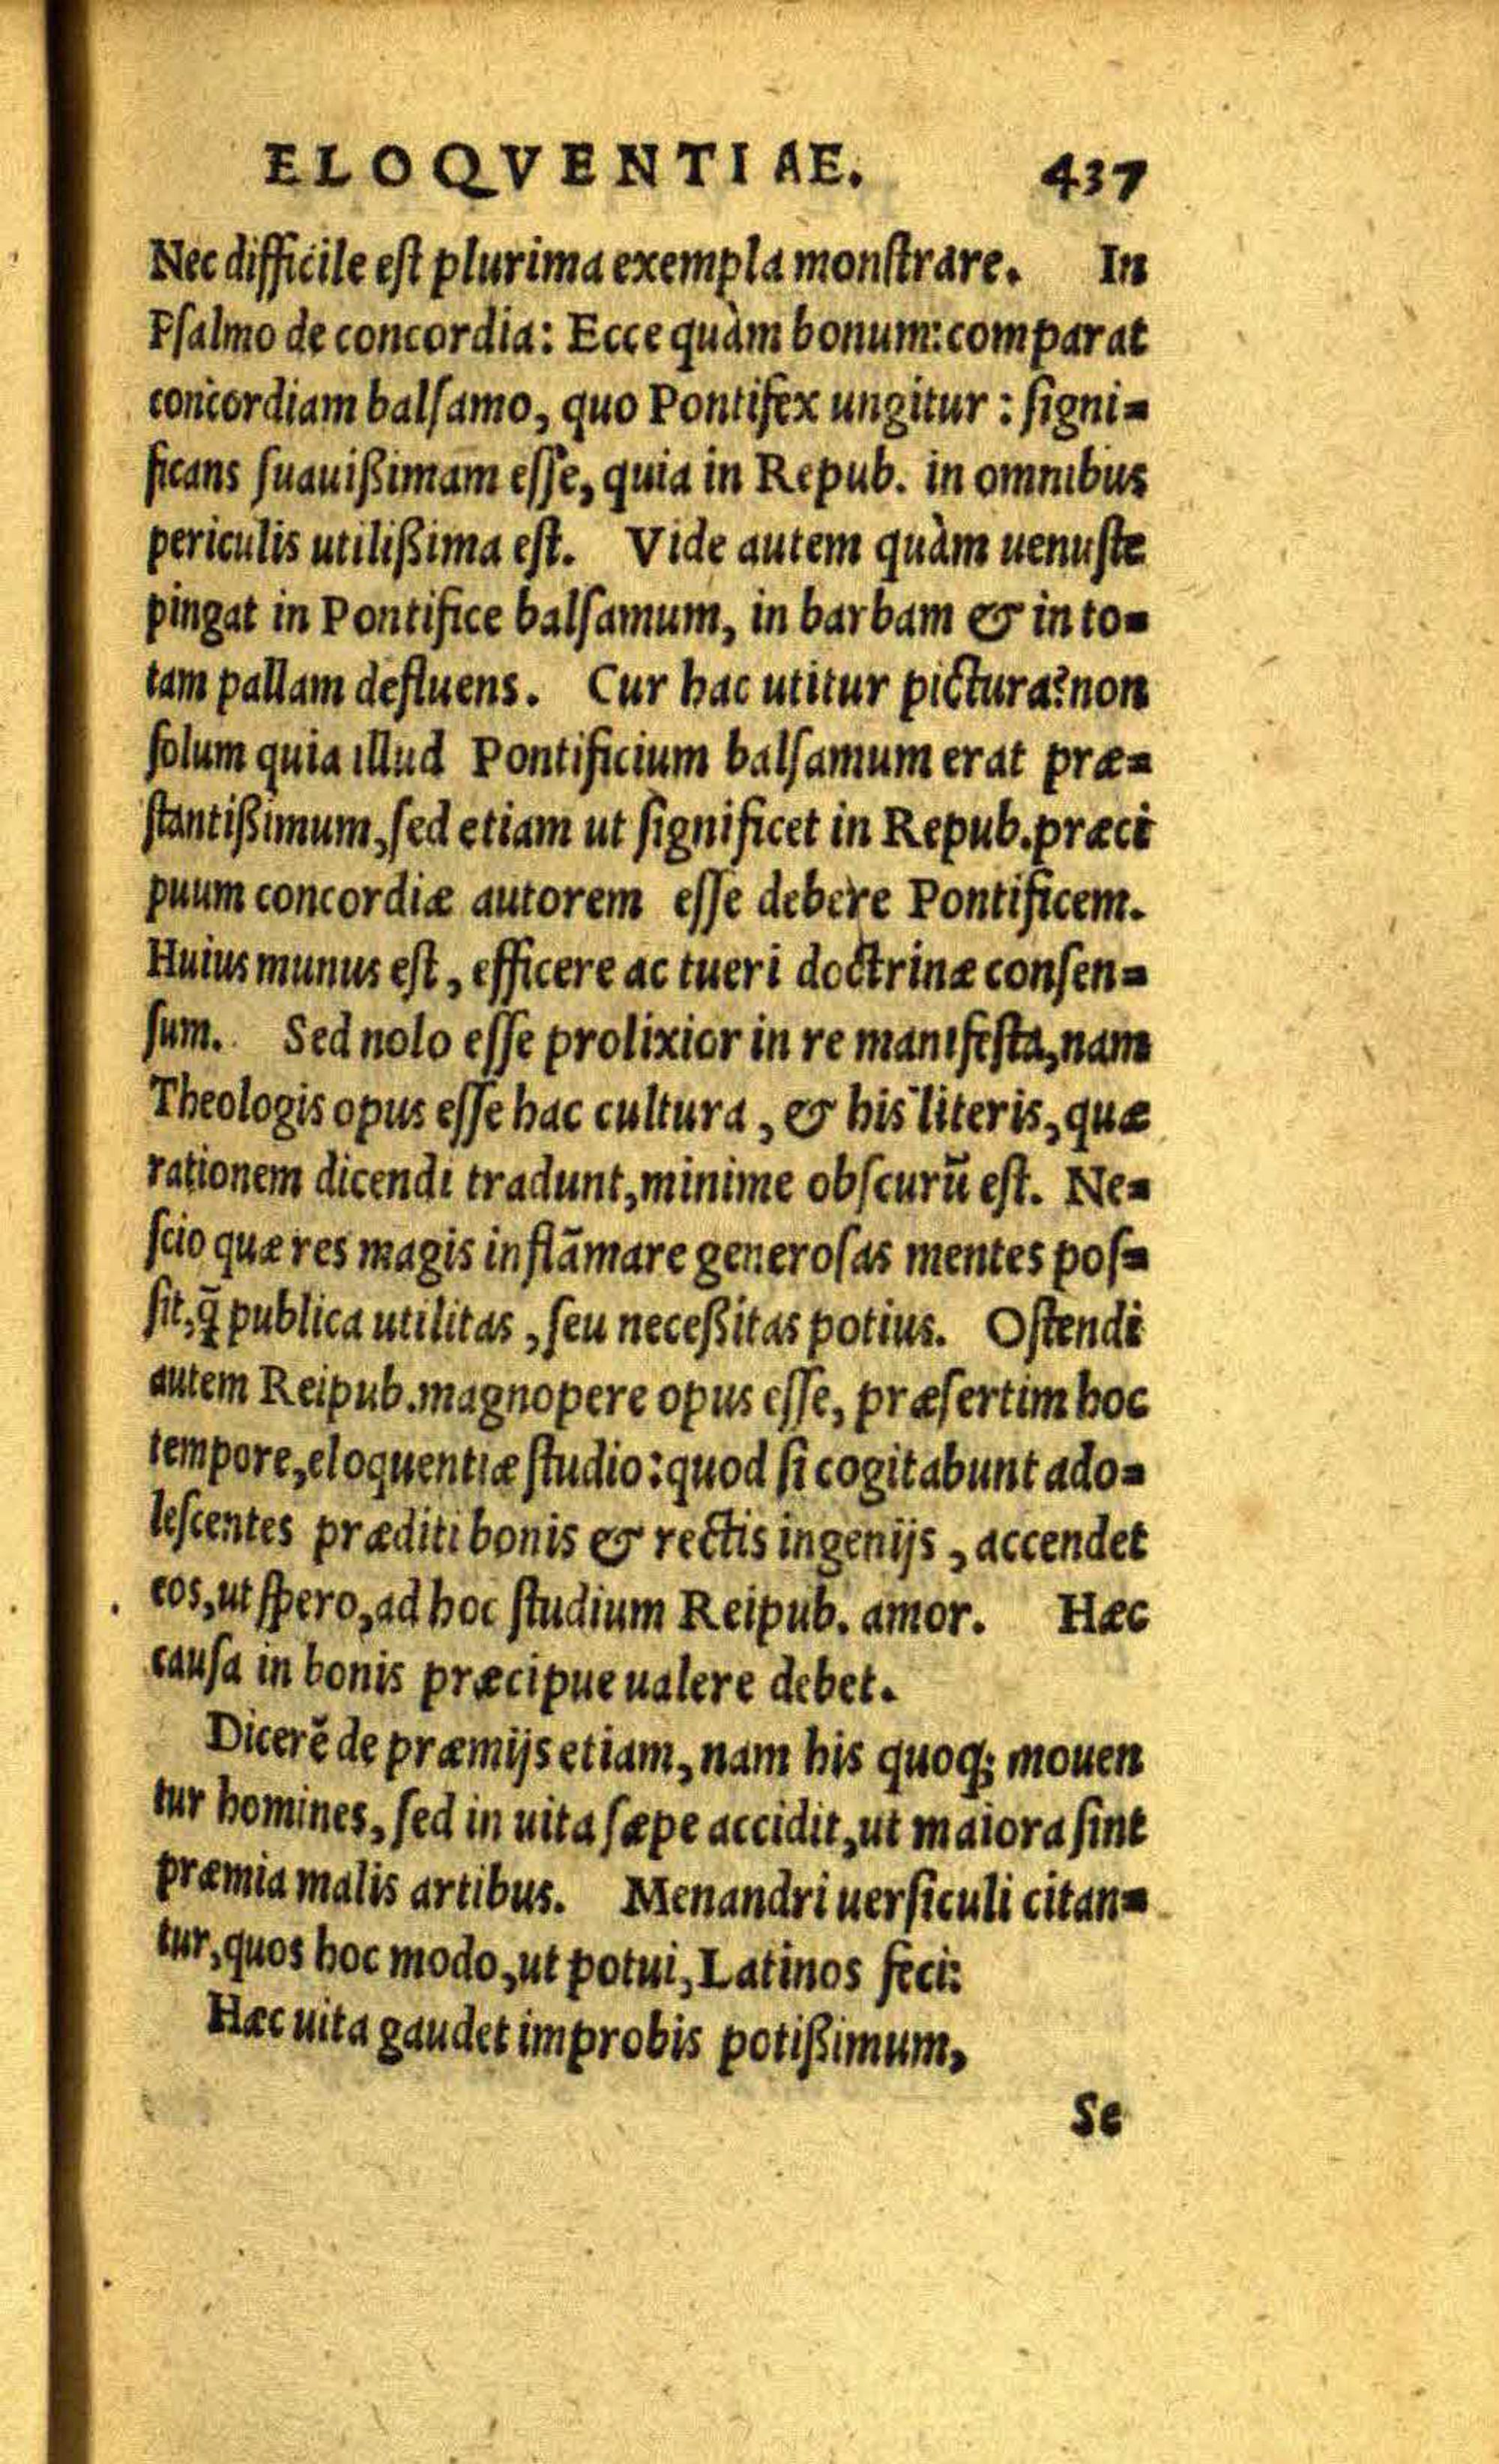 ELOQVENTIAE. 437
Nec difficile est plurima exempla monstrare. In
Psalmo de concordia: Ecce quàm bonum: comparat
concordiam balsamo, quo Pontifex ungitur: signi-
ficans suauißimam esse, quia in Repub. in omnibus
periculis utilißima est. Vide autem quàm uenuste
pingat in Pontifice balsamum, in barbam & in to-
tam pallam defluens. Cur hac utitur pictura? non
solum quia illud Pontificium balsamum erat præ-
stantißimum, sed etiam ut significet in Repub. præci
puum concordiæ autorem esse debere Pontificem.
Huius munus est, efficere ac tueri doctrinæ consen-
sum. Sed nolo esse prolixior in re manifesta, nam
Theologis opus esse hac cultura, & his literis, quæ
rationem dicendi tradunt, minime obscurũ est. Ne-
scio quæ res magis inflãmare generosas mentes pos-
sit, q̃ publica utilitas, seu neceßitas potius. Ostendi
autem Reipub. magnopere opus esse, præsertim hoc
tempore, eloquentiæ studio: quod si cogitabunt ado-
lescentes præditi bonis & rectis ingenijs, accendet
eos, ut spero, ad hoc studium Reipub. amor. Hæc
causa in bonis præcipue ualere debet.
Dicerẽ de præmijs etiam, nam his quoq; mouen
tur homines, sed in uita sæpe accidit, ut maiora sint
præmia malis artibus. Menandri uersiculi citan-
tur, quos hoc modo, ut potui, Latinos feci:
Hæc uita gaudet improbis potißimum,
Se